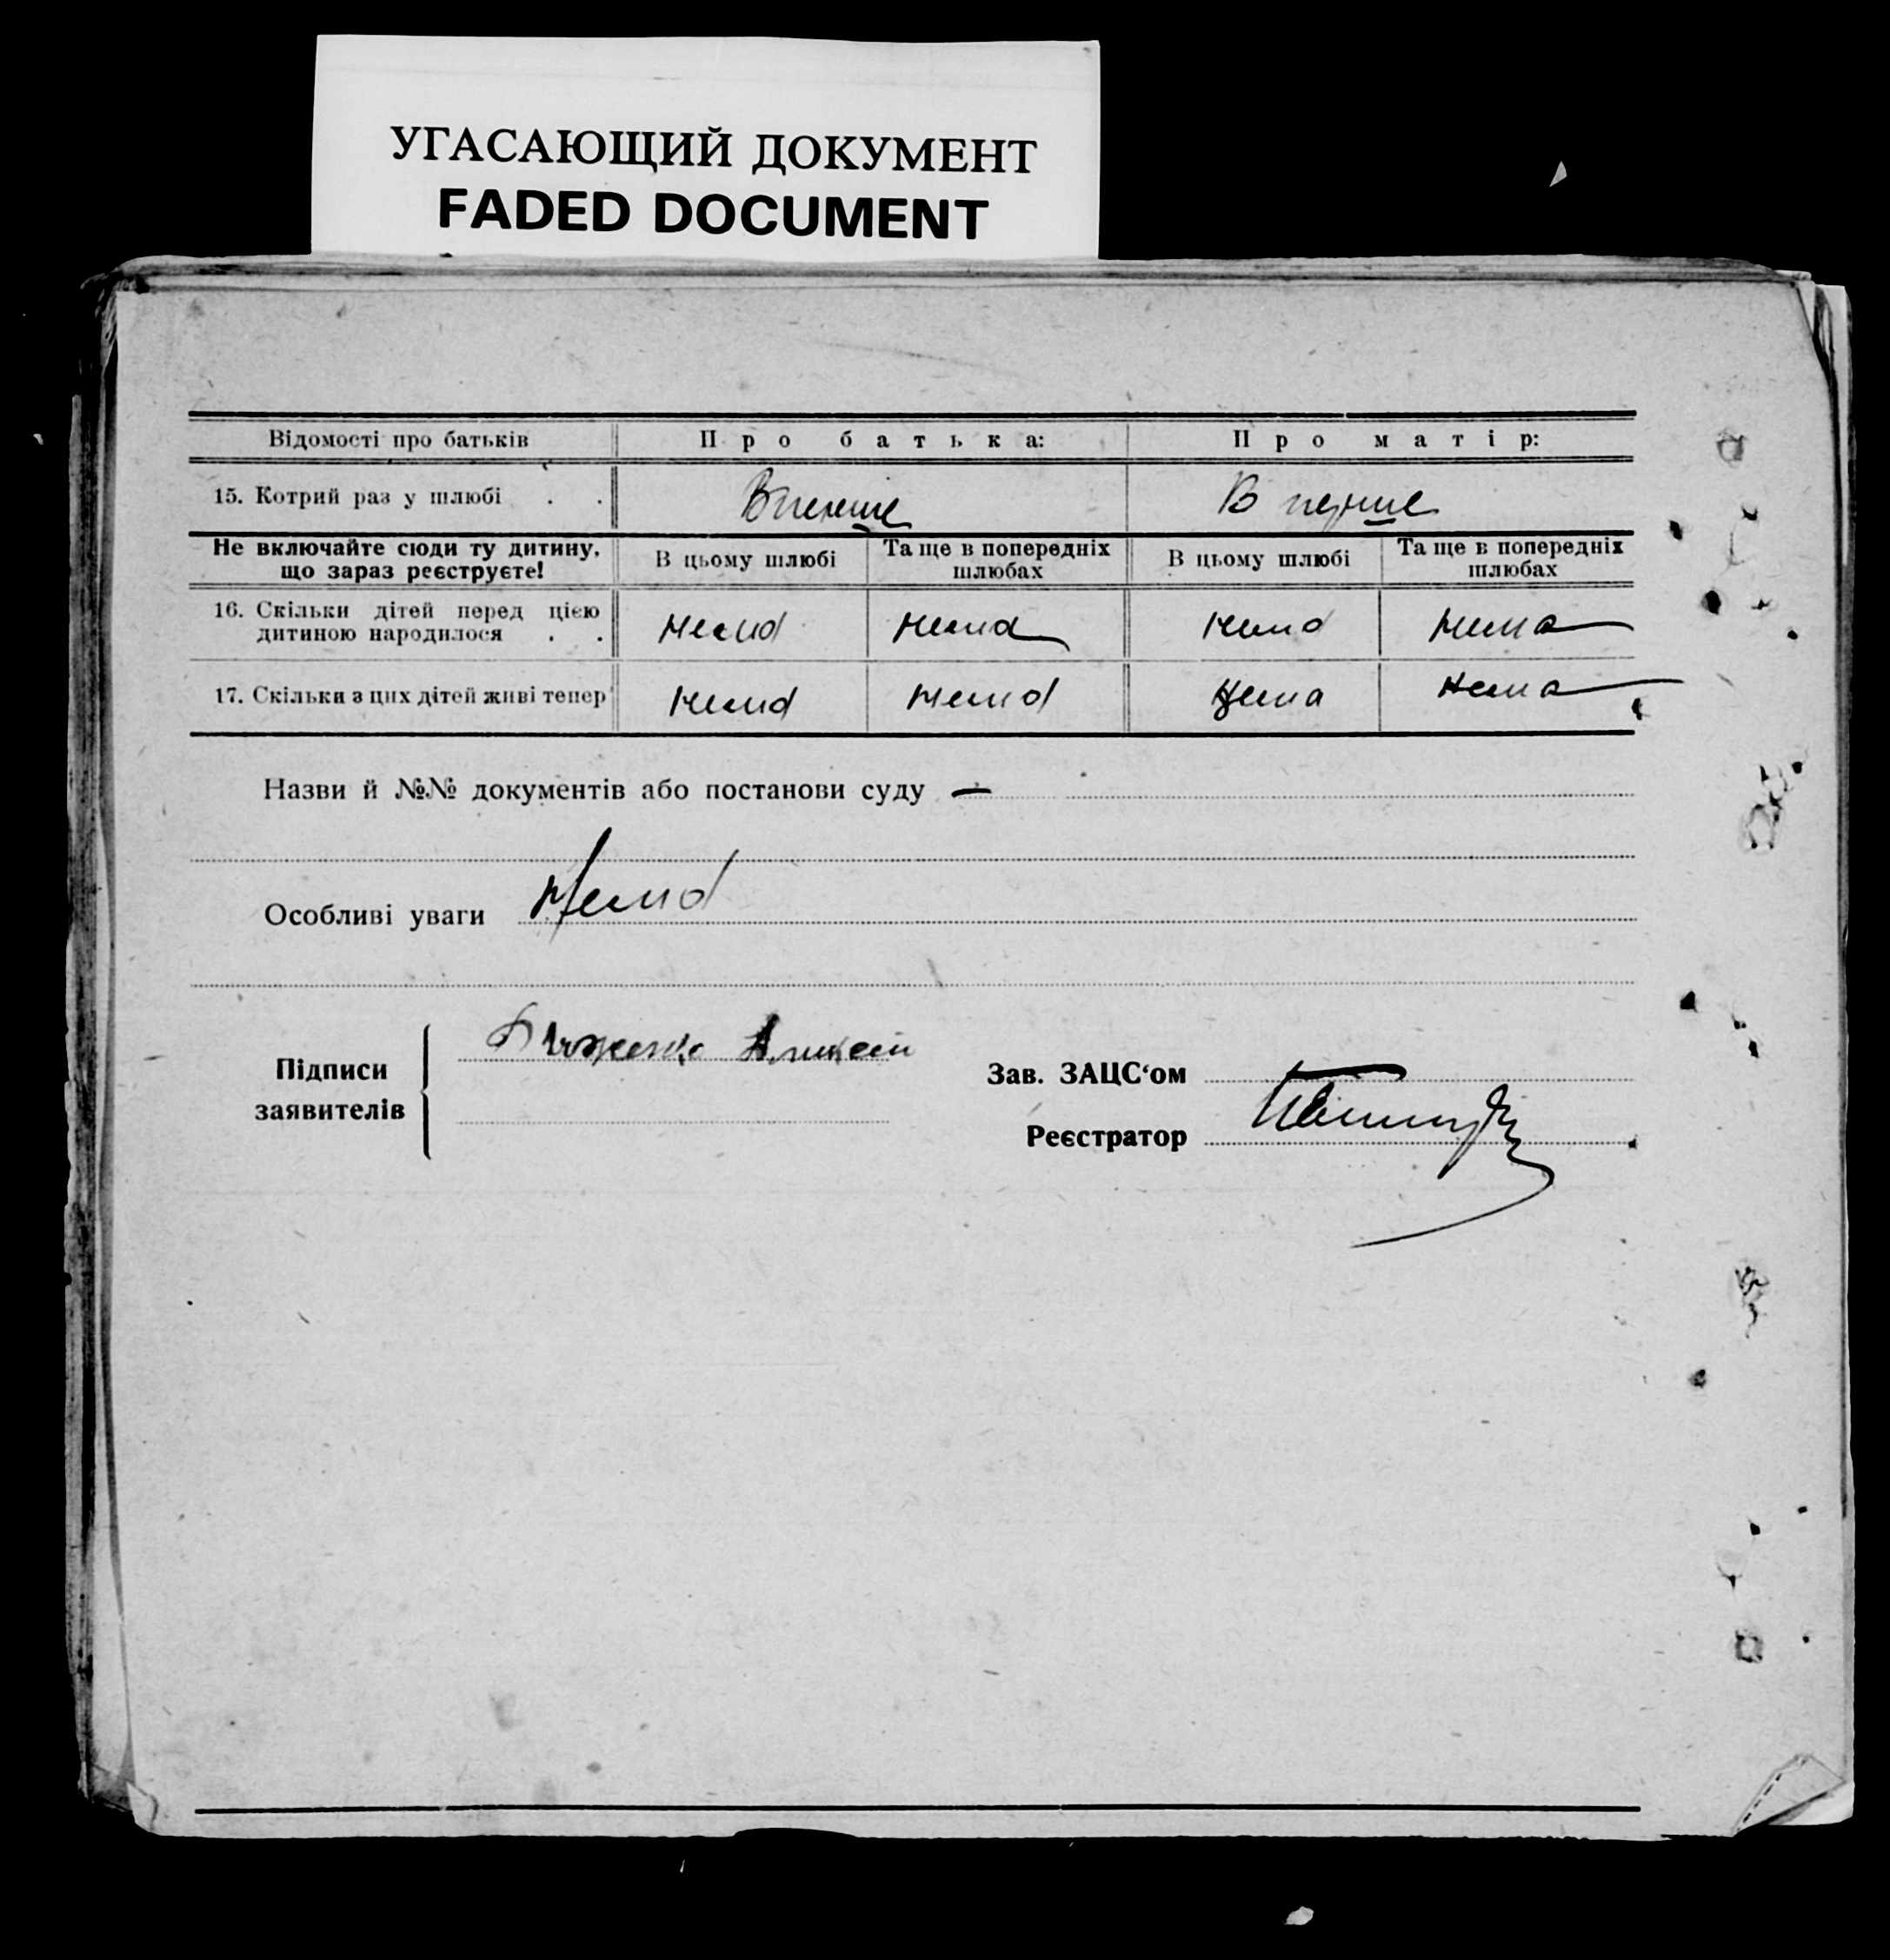 УГАСАЮЩИЙ ДОКУМЕНТ
FADED DOCUMENT
Відомості про батьків Про батька: Про матір:
15. Котрий раз у шлюбі . . Вперше В перше
Не включайте сюди ту дитину, що зараз реєструєте! В цьому шлюбі Та ще в попередніх шлюбах В цьому шлюбі Та ще в попередніх шлюбах
16. Скільки дітей перед цією
дитиною народилося . . нема нема нема нема
17. Скільки з цих дітей живі тепер нема нема нема нема
Назви й №№ документів або постанови суду —
Особливі уваги Нема
Підписи
заявителів
Зав. ЗАЦС‘ом
Реєстратор